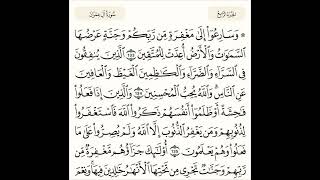 الجزء الرابع
سورة آل عمران
۞ وَسَارِعُوٓا۟ إِلَىٰ مَغْفِرَةٍ مِّن رَّبِّكُمْ وَجَنَّةٍ عَرْضُهَا
ٱلسَّمَٰوَٰتُ وَٱلْأَرْضُ أُعِدَّتْ لِلْمُتَّقِينَ ١٣٣ ٱلَّذِينَ يُنفِقُونَ
فِى ٱلسَّرَّآءِ وَٱلضَّرَّآءِ وَٱلْكَٰظِمِينَ ٱلْغَيْظَ وَٱلْعَافِينَ
عَنِ ٱلنَّاسِ وَٱللَّهُ يُحِبُّ ٱلْمُحْسِنِينَ ١٣٤ وَٱلَّذِينَ إِذَا فَعَلُوا۟
فَٰحِشَةً أَوْ ظَلَمُوٓا۟ أَنفُسَهُمْ ذَكَرُوا۟ ٱللَّهَ فَٱسْتَغْفَرُوا۟
لِذُنُوبِهِمْ وَمَن يَغْفِرُ ٱلذُّنُوبَ إِلَّا ٱللَّهُ وَلَمْ يُصِرُّوا۟ عَلَىٰ مَا
فَعَلُوا۟ وَهُمْ يَعْلَمُونَ ١٣٥ أُو۟لَٰٓئِكَ جَزَآؤُهُم مَّغْفِرَةٌ مِّن
رَّبِّهِمْ وَجَنَّٰتٌ تَجْرِى مِن تَحْتِهَا ٱلْأَنْهَٰرُ خَٰلِدِينَ فِيهَا وَنِعْمَ